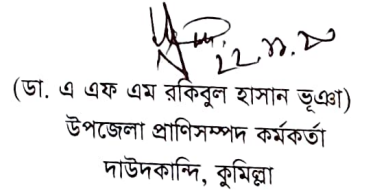 22.11.20
(ডা. এ এফ এম রকিবুল হাসান ভূঞা)
উপজেলা প্রাণিসম্পদ কর্মকর্তা
দাউদকান্দি, কুমিল্লা